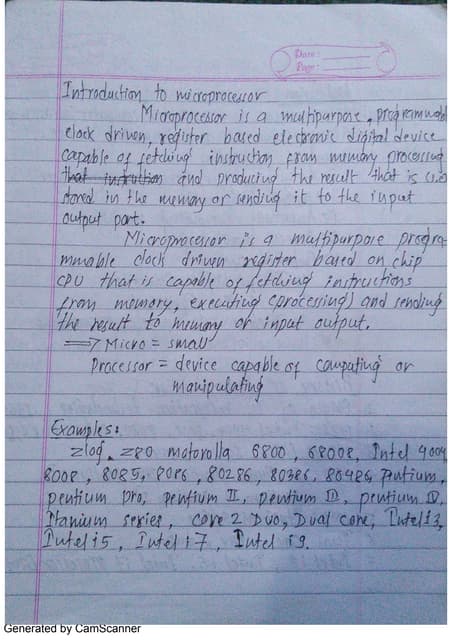 Date:
Page:
Introduction to microprocessor
Microprocessor is a multipurpose, programmabl
clock driven, register based electronic digital device
capable of fetching instruction from memory processing
that instruction and producing the result that is
stored in the memory or sending it to the input
output port.
Microprocessor is a multipurpose progra-
mmable clock driven register based on chip
CPU that is capable of fetching instructions
from memory, executing (processing) and sending
the result to memory or input output.
⇒ Micro = small
Processor = device capable of computing or
manipulating
Examples:
zlog. z80 motorolla 6800, 68008, Intel 4004,
8008, 8085, 8086, 80286, 80386, 80486, Pentium,
pentium pro, pentium II, pentium III, pentium IV,
Itanium series, core 2 Duo, Dual core, Intel i3,
Intel i5, Intel i7, Intel i9.
Generated by CamScanner